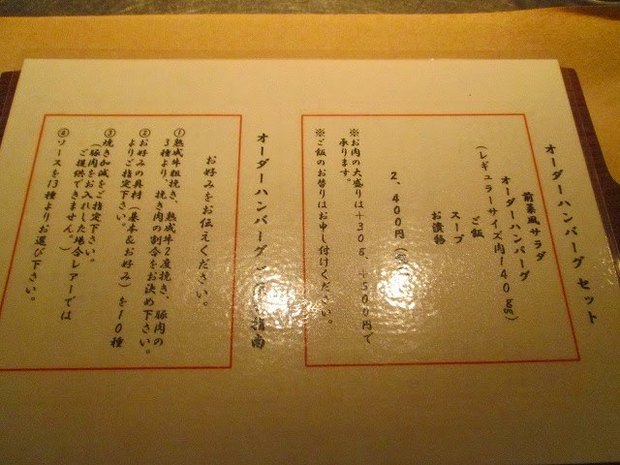 オーダーハンバーグ セット
前菜風サラダ
オーダーハンバーグ
(レギュラーサイズ肉140g)
ご飯
スープ
お漬物
2,400円
※お肉の大盛りは+30g、+500円で
承ります。
※ご飯のお替りはお申し付けください。
オーダーハンバーグ 指南
お好みをお伝えください。
①熟成牛粗挽き、熟成牛2度挽き、豚肉の
3種より、挽き肉の割合をお決め下さい。
②お好みの具材(基本&お好み)を10種
よりご指定下さい。
③焼き加減をご指定下さい。
(豚肉をお入れした場合レアーでは
ご提供できません。)
④ソースを13種よりお選び下さい。